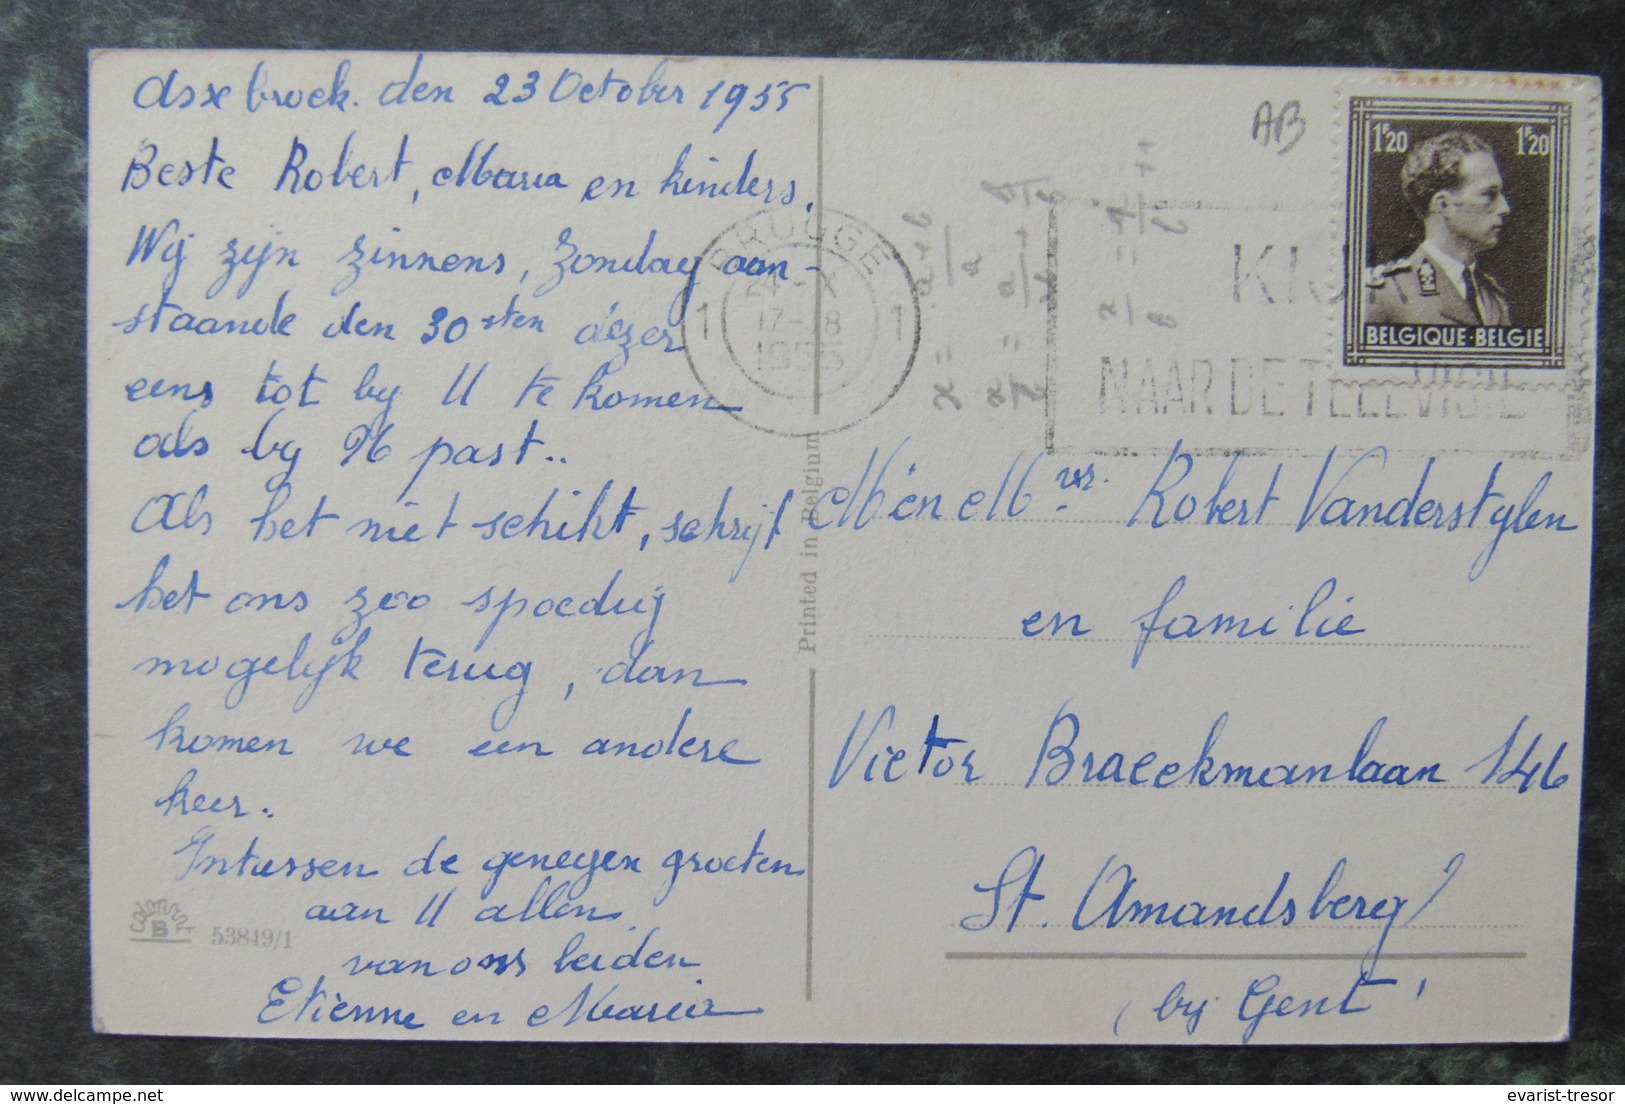 Assebroek. den 23 October 1955
Beste Robert, Maria en kinders,
Wij zijn zinnens, Zondag aan-
staande den 30sten dezer
eens tot by U te komen
als by U past..
Als het niet schikt, schrijf
het ons zoo spoedig
mogelijk terug, dan
komen we een andere
keer.
Intussen de genegen groeten
aan U allen
van ons beiden
Etienne en Maria
53849/1
Printed in Belgium
BRUGGE
1 1
24-X
17-18
1955
KIJK
NAAR DE TELEVISIE
AB
1F20 1F20
BELGIQUE·BELGIE
M en Mvr. Robert Vanderstylen
en familie
Victor Braeckmanlaan 146
St. Amandsberg
(by Gent)
evarist-tresor